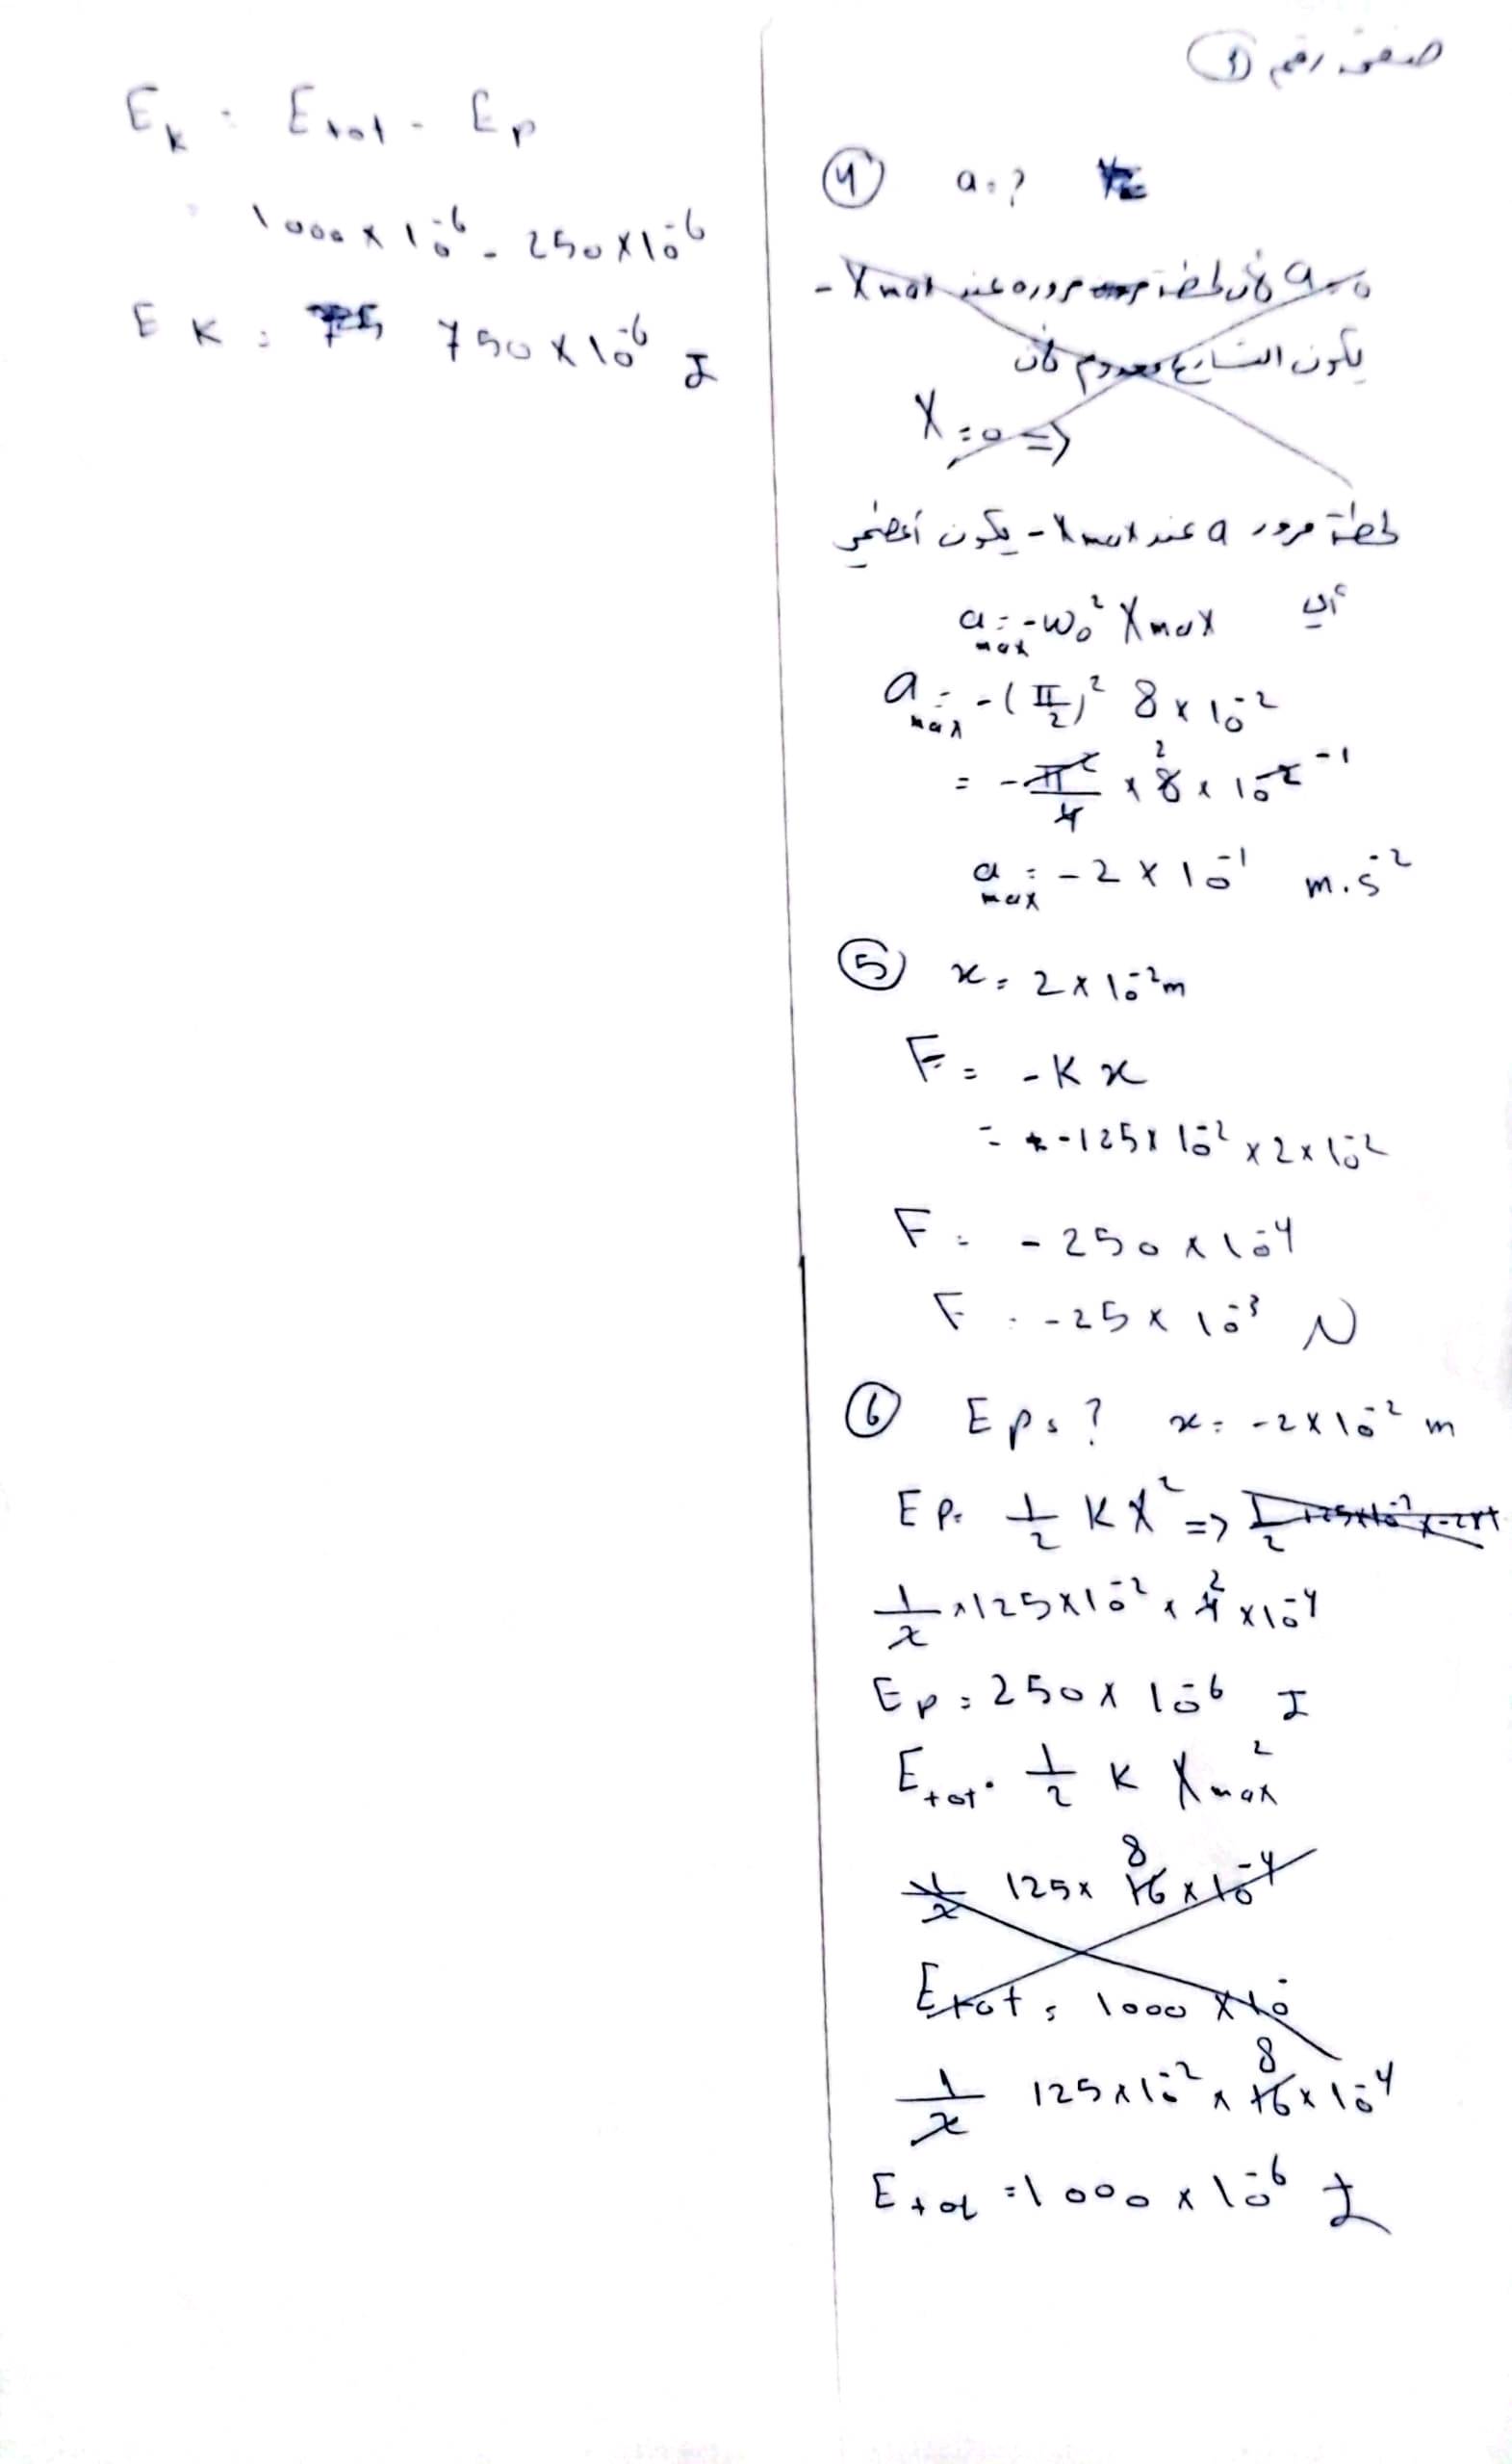 صفحة رقم (1)
④ a = ?
a = 0 فإن لحظة مروره عند -Xmax
يكون التسارع معدوم فإن
X = 0 =>
لحظة مرور a عند -Xmax يكون أعضمي
أي a max = -ω₀² Xmax
a max = -(π/2)² 8 × 10⁻²
= -π²/4 × 8 2 × 10⁻² ⁻¹
a max = -2 × 10⁻¹ m.s⁻²
⑤ x = 2 × 10⁻² m
F = -K x
= -125 × 10⁻² × 2 × 10⁻²
F = -250 × 10⁻⁴
F = -25 × 10⁻³ N
⑥ Ep = ? x = -2 × 10⁻² m
Ep = 1/2 K X² =>
1/2 × 125 × 10⁻² × 4 2 × 10⁻⁴
Ep = 250 × 10⁻⁶ J
Etot = 1/2 K Xmax²
1/2 125 × 16 8 × 10⁻⁴
Etot = 1000 × 10⁻
1/2 125 × 10⁻² × 16 8 × 10⁻⁴
Etot = 1000 × 10⁻⁶ J
Ek = Etot - Ep
= 1000 × 10⁻⁶ - 250 × 10⁻⁶
EK = 750 × 10⁻⁶ J